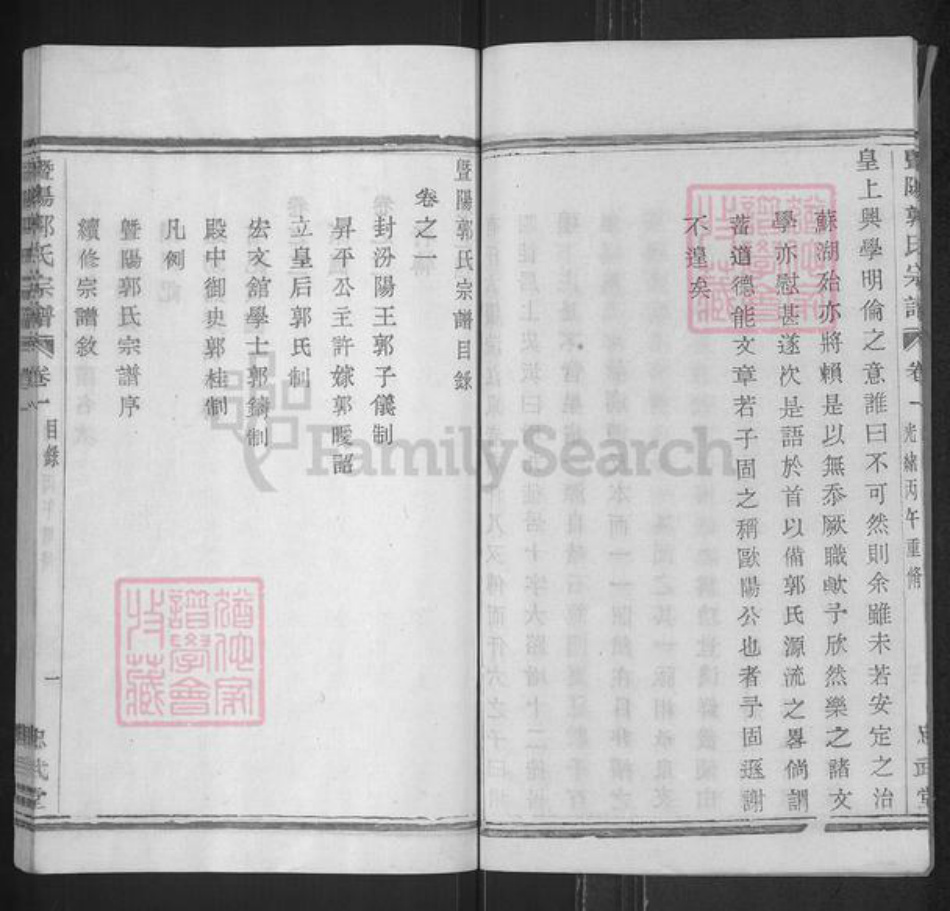 暨陽郭氏宗譜
卷一
光緒丙午重脩
忠武堂
皇上興學明倫之意誰曰不可然則余雖未若安定之治
蘇湖殆亦將賴是以無忝厥職歟予欣然樂之諸文
學亦慰甚遂次是語於首以備郭氏源流之畧倘謂
蓄道德能文章若子固之稱歐陽公也者予固遜謝
不遑矣
暨陽郭氏宗譜目錄
卷之一
封汾陽王郭子儀制
昇平公主許嫁郭曖詔
立皇后郭氏制
宏文館學士郭鑄制
殿中御史郭桂制
凡例
暨陽郭氏宗譜序
續修宗譜敘
暨陽郭氏宗譜
卷一
目錄
一
忠武堂
FamilySearch